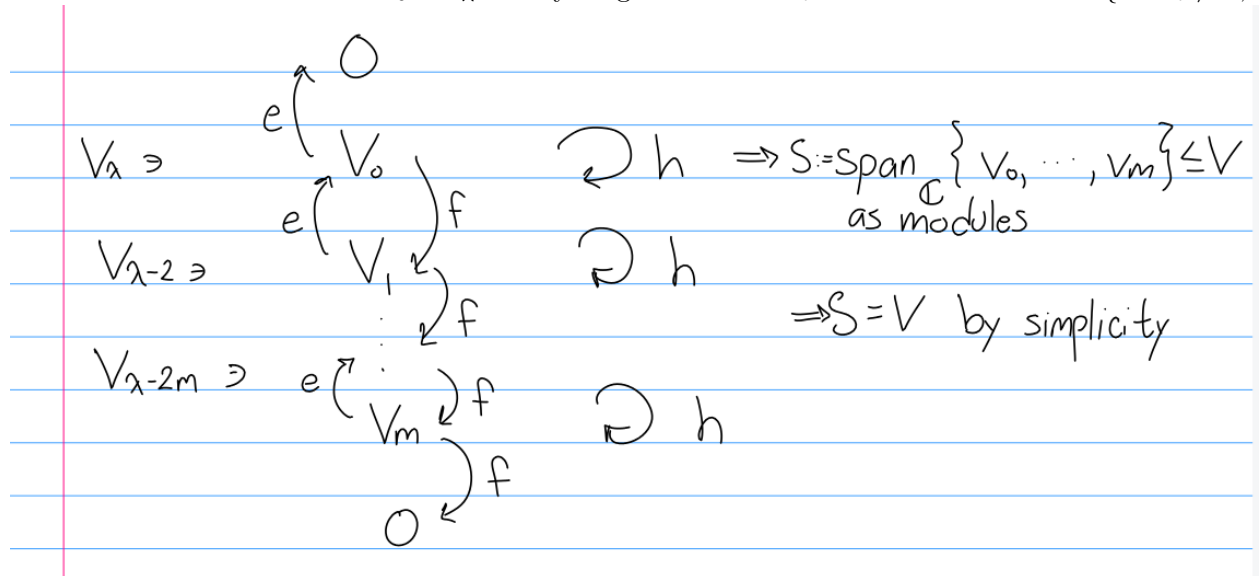 0
e
V_λ ∋ V_0 h ⇒ S:=span_ℂ {V_0, ⋯, V_m} ≤ V
e f as modules
V_{λ-2} ∋ V_1 h
f ⇒ S = V by simplicity
V_{λ-2m} ∋ e f
V_m h
f
0